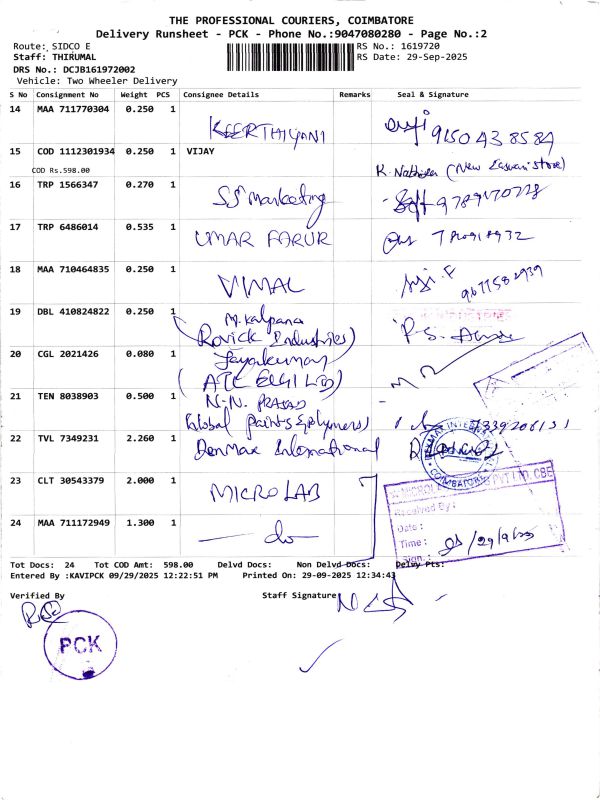 THE PROFESSIONAL COURIERS, COIMBATORE
Delivery Runsheet - PCK - Phone No.:9047080280 - Page No.:2
Route: SIDCO E RS No.: 1619720
Staff: THIRUMAL RS Date: 29-Sep-2025
DRS No.: DCJB161972002
Vehicle: Two Wheeler Delivery
S No Consignment No Weight PCS Consignee Details Remarks Seal & Signature
14 MAA 711770304 0.250 1 KEERTHIYANI 9150438584
15 COD 1112301934 0.250 1 VIJAY
COD Rs.598.00 (New Easwari Store)
16 TRP 1566347 0.270 1 SS Marketing
17 TRP 6486014 0.535 1 UMAR FARUK
18 MAA 710464835 0.250 1 VIMAL 9677582939
19 DBL 410824822 0.250 1 M. Kalpana
(Rovick Industries)
20 CGL 2021426 0.080 1 Jayakumar
(ATC ELGI LTD)
21 TEN 8038903 0.500 1 N.N. PRASAD
(Global Paints & Polymers)
22 TVL 7349231 2.260 1 Denmax International
COIMBATORE
23 CLT 30543379 2.000 1 MICRO LAB
PVT LTD, CBE
Received By:
Date:
Time: 29/9/25
Sign.:
24 MAA 711172949 1.300 1 — do —
Tot Docs: 24 Tot COD Amt: 598.00 Delvd Docs: Non Delvd Docs: Delvy Pts:
Entered By :KAVIPCK 09/29/2025 12:22:51 PM Printed On: 29-09-2025 12:34:43
Verified By Staff Signature
PCK